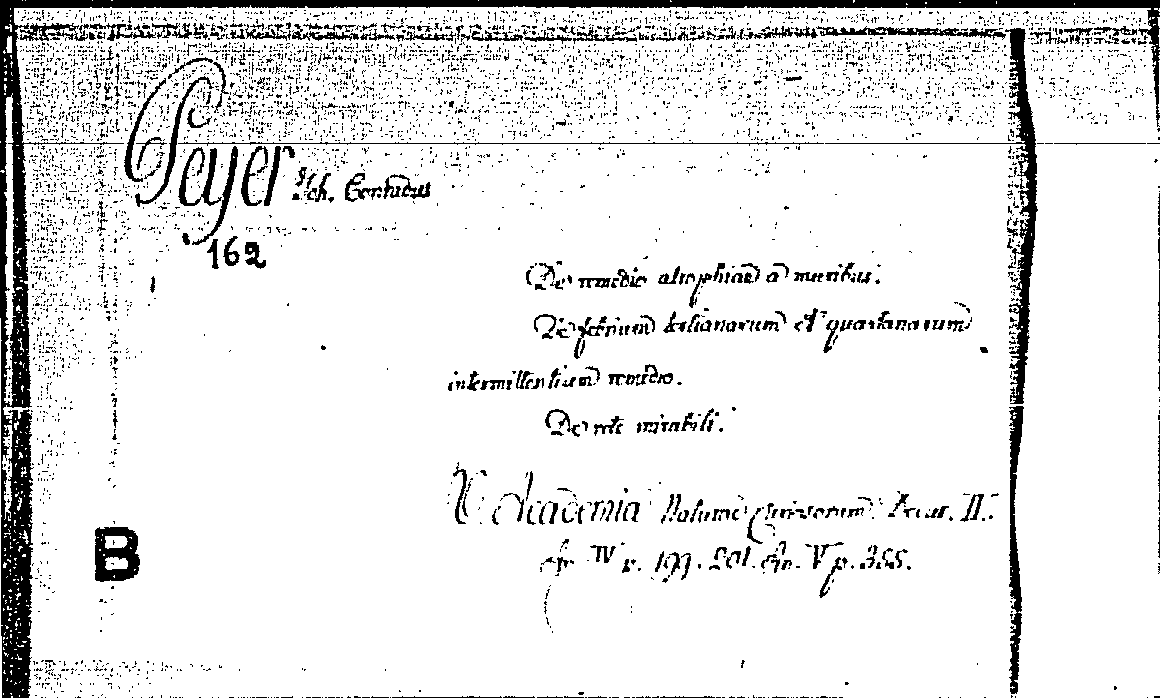 Peyer Joh. Conradus
162
De remedio atrophiae a muribus.
De febrium tertianarum et quartanarum
intermittentium remedio.
De rete mirabili.
V. Academia Naturae Curiosorum. Decur. II.
An. IV p. 199. 201. An. V p. 355.
B